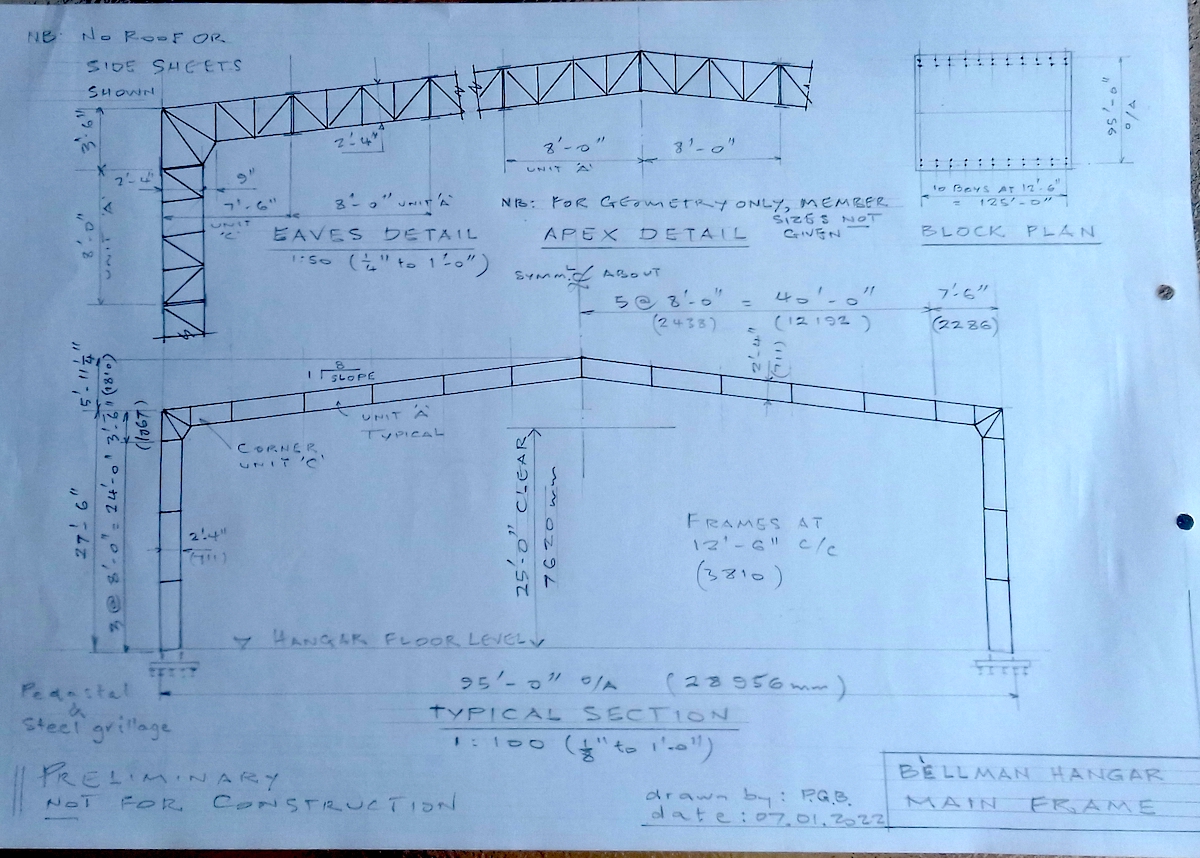 NB: NO ROOF OR
SIDE SHEETS
SHOWN
3'-6"
2'-4"
9"
7'-6"
UNIT 'C'
8'-0" UNIT 'A'
8'-0"
UNIT 'A'
2'-4"
EAVES DETAIL
1:50 (¼" to 1'-0")
8'-0"
UNIT 'A'
8'-0"
NB: FOR GEOMETRY ONLY, MEMBER
SIZES NOT
GIVEN
APEX DETAIL
95'-0"
O/A
10 BAYS AT 12'-6"
= 125'-0"
BLOCK PLAN
SYMM. ℄ ABOUT
5 @ 8'-0" = 40'-0"
(2438) (12192)
7'-6"
(2286)
2'-4"
(711)
5'-11¼"
(1810)
8
1 SLOPE
UNIT 'A'
TYPICAL
3'-6"
(1067)
CORNER
UNIT 'C'
27'-6"
3 @ 8'-0" = 24'-0"
2'-4"
(711)
25'-0" CLEAR
7620mm
FRAMES AT
12'-6" C/C
(3810)
HANGAR FLOOR LEVEL
Pedastal
&
Steel grillage
95'-0" O/A (28956mm)
TYPICAL SECTION
1:100 (⅛" to 1'-0")
PRELIMINARY
NOT FOR CONSTRUCTION
drawn by: P.G.B.
date: 07.01.2022
BELLMAN HANGAR
MAIN FRAME